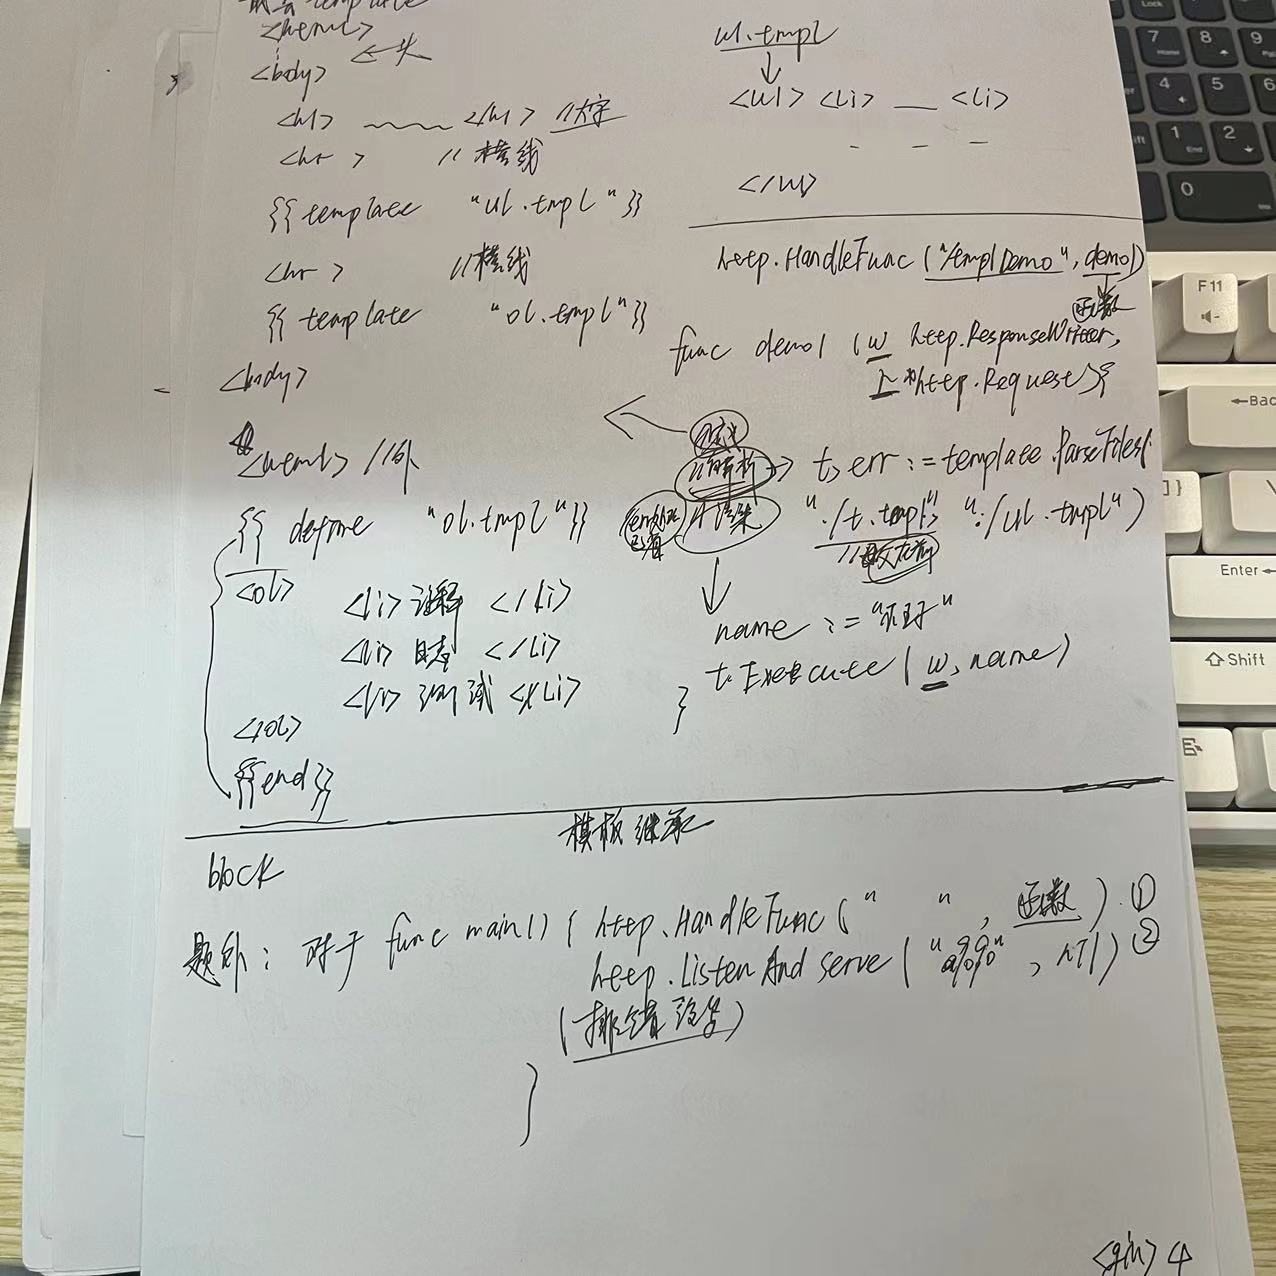 template
<html>
<body> ← 头
<h1> </h1> //大字
<hr> //横线
{{template "ul.tmpl"}}
<hr> //横线
{{template "ol.tmpl"}}
<body>
<html> //外
{{define "ol.tmpl"}}
<ol>
<li>注释</li>
<li>日志</li>
<li>测试</li>
<ol>
{{end}}
ul.tmpl
↓
<ul> <li> — <li>
— — —
</ul>
http.HandleFunc("/tmplDemo", demo1)
函数
func demo1 (w http.ResponseWriter,
r *http.Request){
//解析 → t, err := template.ParseFiles(
//渲染 "./t.tmpl", "./ul.tmpl")
name :=
t.Execute(w, name)
}
模板继承
block
题外: 对于 func main() { http.HandleFunc(" ", 函数) ①
http.ListenAndServe(" ", nil) ②
}
<gin> 4